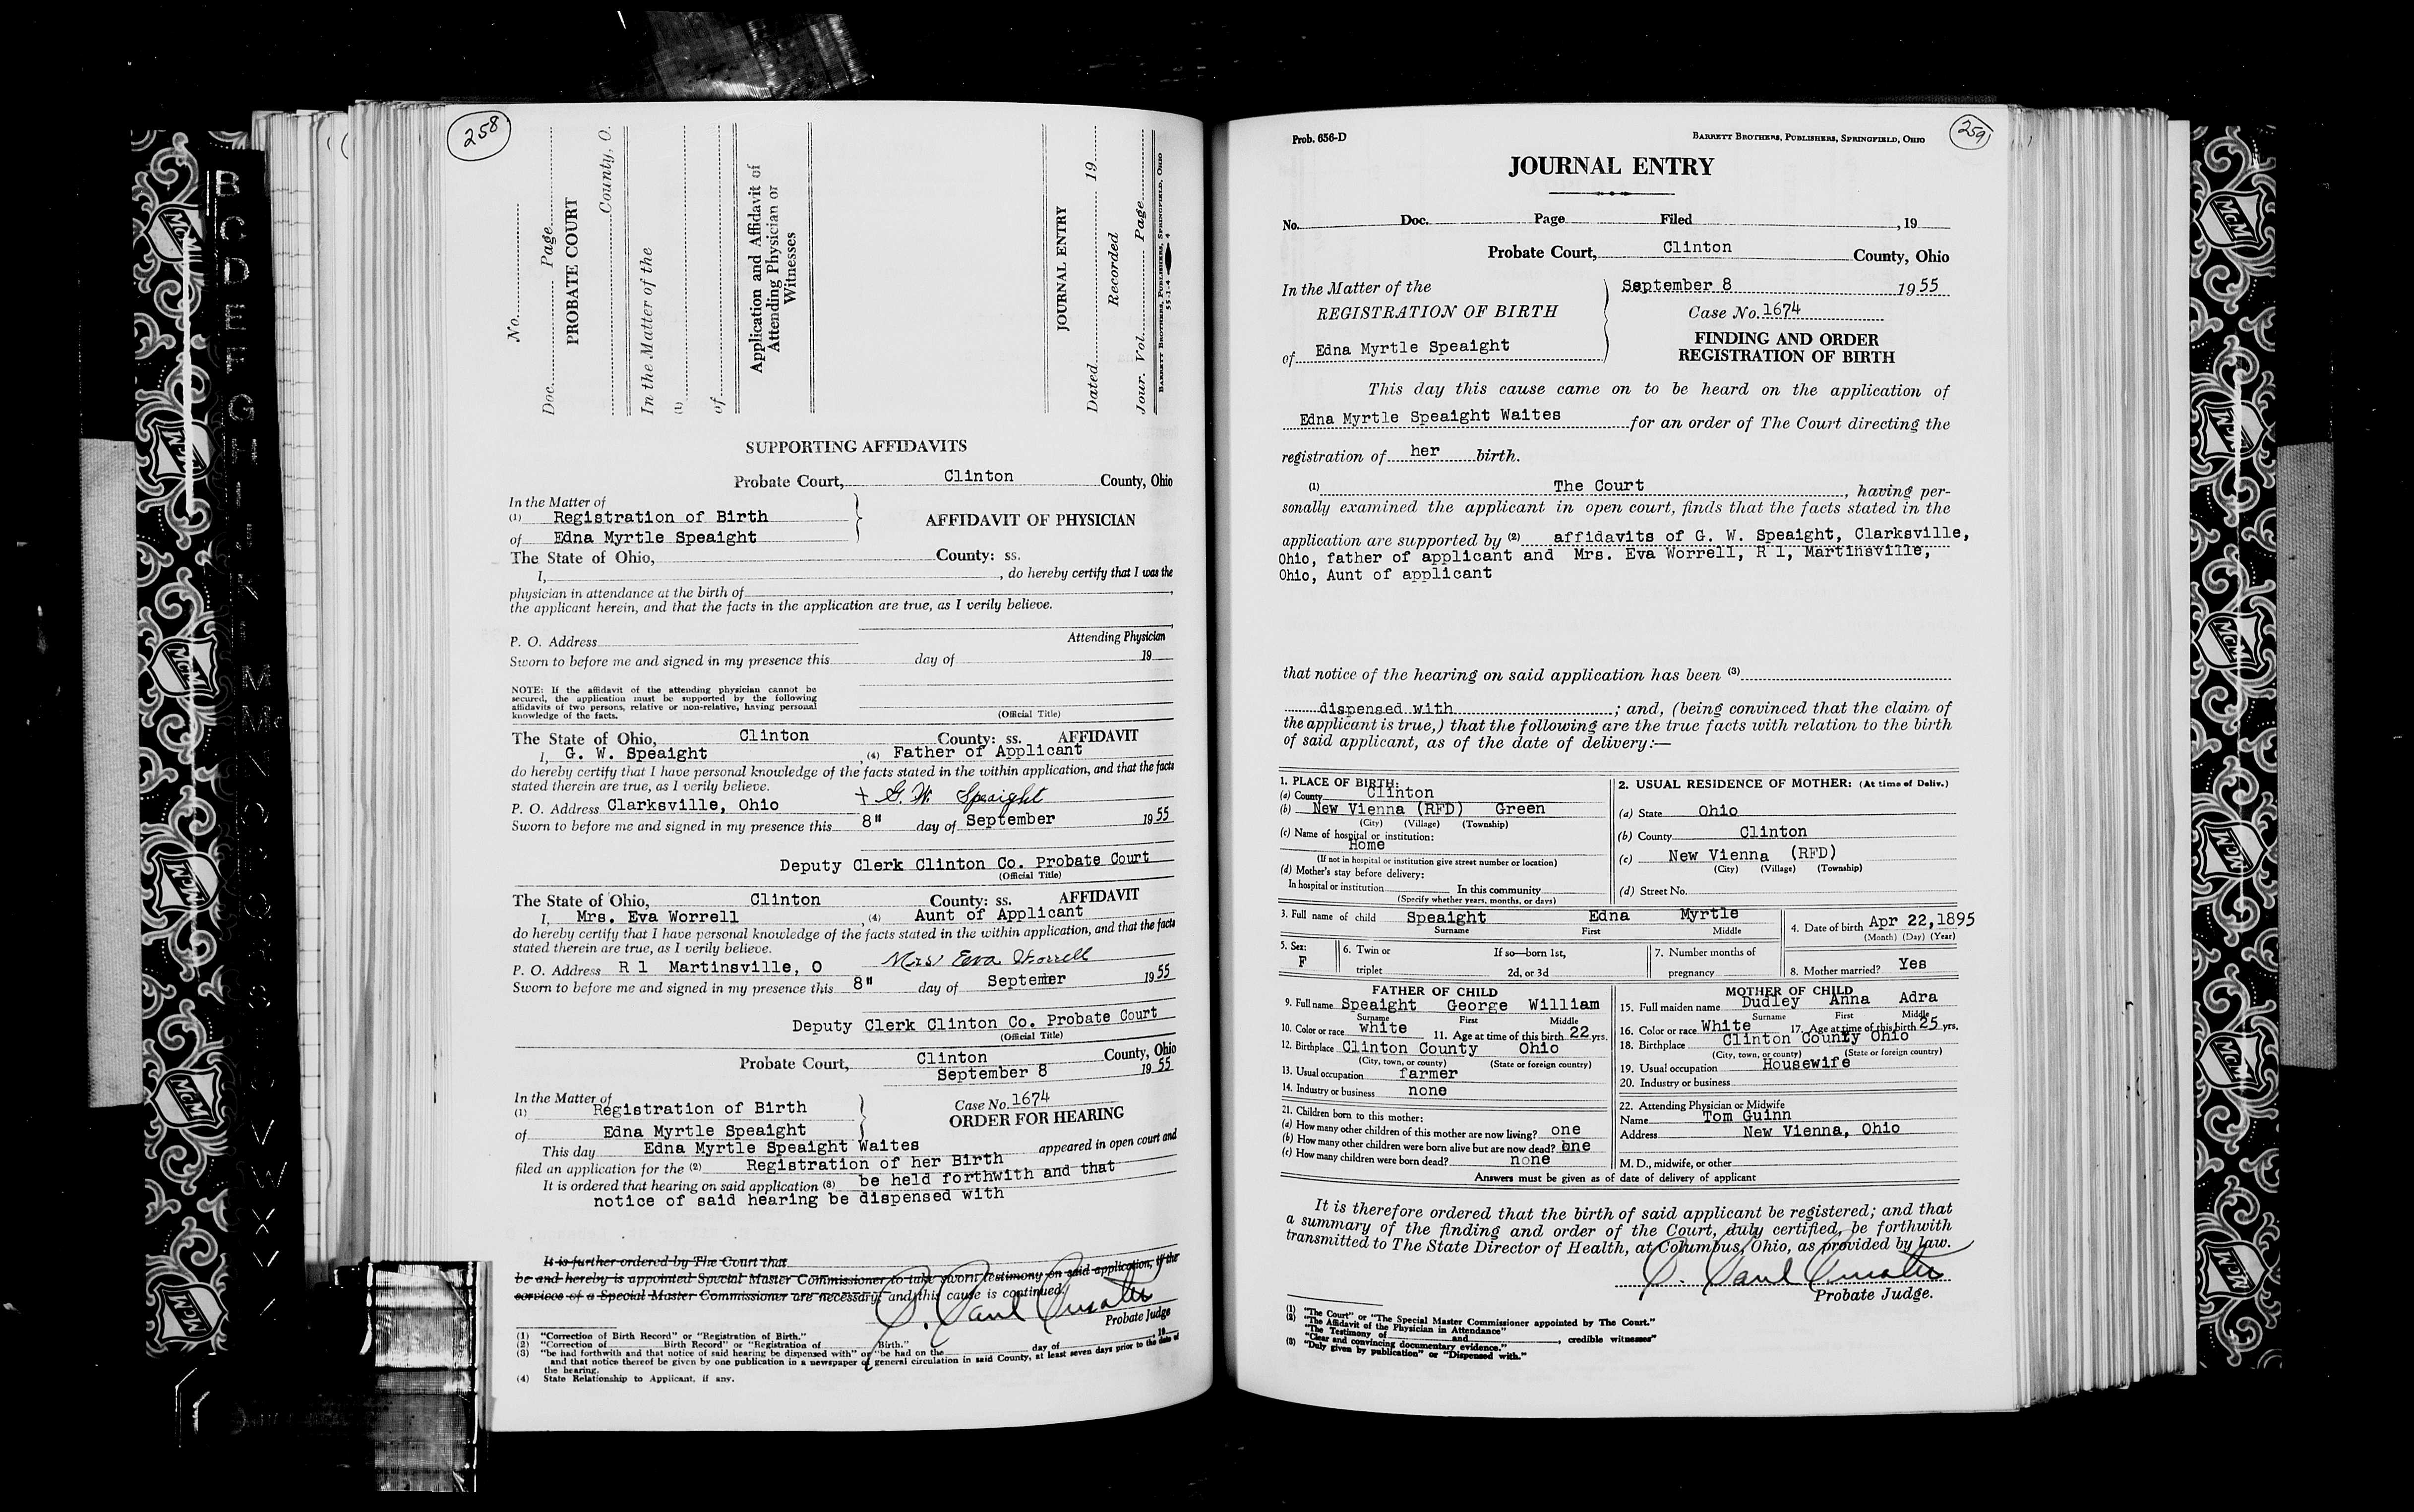 258
No.
Doc. Page
PROBATE COURT
County, O.
In the Matter of the
(1)
of
Application and Affidavit of
Attending Physician or
Witnesses
JOURNAL ENTRY
Dated 19
Recorded
Jour. Vol. Page
BARRETT BROTHERS, PUBLISHERS, SPRINGFIELD, OHIO
55-1-4 4
SUPPORTING AFFIDAVITS
Probate Court, Clinton County, Ohio
In the Matter of
(1) Registration of Birth
of Edna Myrtle Speaight
AFFIDAVIT OF PHYSICIAN
The State of Ohio, County: ss.
I, , do hereby certify that I was the
physician in attendance at the birth of ,
the applicant herein, and that the facts in the application are true, as I verily believe.
P. O. Address Attending Physician
Sworn to before me and signed in my presence this day of 19
NOTE: If the affidavit of the attending physician cannot be
secured, the application must be supported by the following
affidavits of two persons, relative or non-relative, having personal
knowledge of the facts.
(Official Title)
The State of Ohio, Clinton County: ss. AFFIDAVIT
I, G. W. Speaight , (4) Father of Applicant
do hereby certify that I have personal knowledge of the facts stated in the within application, and that the facts
stated therein are true, as I verily believe.
P. O. Address Clarksville, Ohio + G. W. Speaight
Sworn to before me and signed in my presence this 8" day of September 19 55
Deputy Clerk Clinton Co. Probate Court
(Official Title)
The State of Ohio, Clinton County: ss. AFFIDAVIT
I, Mrs. Eva Worrell (4) Aunt of Applicant
do hereby certify that I have personal knowledge of the facts stated in the within application, and that the facts
stated therein are true, as I verily believe.
P. O. Address R 1 Martinsville, O Mrs Eva Worrell
Sworn to before me and signed in my presence this 8" day of September 19 55
Deputy Clerk Clinton Co. Probate Court
(Official Title)
Probate Court, Clinton County, Ohio
September 8 19 55
In the Matter of
(1) Registration of Birth
of Edna Myrtle Speaight
Case No. 1674
ORDER FOR HEARING
This day Edna Myrtle Speaight Waites appeared in open court and
filed an application for the (2) Registration of her Birth
It is ordered that hearing on said application (3) be held forthwith and that
notice of said hearing be dispensed with
It is further ordered by The Court that
be and hereby is appointed Special Master Commissioner to take sworn testimony on said application, if the
services of a Special Master Commissioner are necessary, and this cause is continued.
Probate Judge
(1) "Correction of Birth Record" or "Registration of Birth."
(2) "Correction of Birth Record" or "Registration of Birth."
(3) "be had forthwith and that notice of said hearing be dispensed with" or "be had on the day of , 19
and that notice thereof be given by one publication in a newspaper of general circulation in said County, at least seven days prior to the date of
the hearing.
(4) State Relationship to Applicant, if any.
Prob. 656-D BARRETT BROTHERS, PUBLISHERS, SPRINGFIELD, OHIO 259
JOURNAL ENTRY
No. Doc. Page Filed , 19
Probate Court, Clinton County, Ohio
In the Matter of the
REGISTRATION OF BIRTH
of Edna Myrtle Speaight
September 8 19 55
Case No. 1674
FINDING AND ORDER
REGISTRATION OF BIRTH
This day this cause came on to be heard on the application of
Edna Myrtle Speaight Waites for an order of The Court directing the
registration of her birth.
(1) The Court , having per-
sonally examined the applicant in open court, finds that the facts stated in the
application are supported by (2) affidavits of G. W. Speaight, Clarksville,
Ohio, father of applicant and Mrs. Eva Worrell, R 1, Martinsville,
Ohio, Aunt of applicant
that notice of the hearing on said application has been (3)
dispensed with ; and, (being convinced that the claim of
the applicant is true,) that the following are the true facts with relation to the birth
of said applicant, as of the date of delivery:—
1. PLACE OF BIRTH:
(a) County Clinton
(b) New Vienna (RFD) Green
(City) (Village) (Township)
(c) Name of hospital or institution:
Home
(If not in hospital or institution give street number or location)
(d) Mother's stay before delivery:
In hospital or institution In this community
(Specify whether years, months, or days)
2. USUAL RESIDENCE OF MOTHER: (At time of Deliv.)
(a) State Ohio
(b) County Clinton
(c) New Vienna (RFD)
(City) (Village) (Township)
(d) Street No.
3. Full name of child Speaight Edna Myrtle
Surname First Middle
4. Date of birth Apr 22, 1895
(Month) (Day) (Year)
5. Sex: F
6. Twin or triplet
If so—born 1st, 2d, or 3d
7. Number months of pregnancy
8. Mother married? Yes
FATHER OF CHILD
9. Full name Speaight George William
Surname First Middle
10. Color or race white 11. Age at time of this birth 22 yrs.
12. Birthplace Clinton County Ohio
(City, town, or county) (State or foreign country)
13. Usual occupation farmer
14. Industry or business none
MOTHER OF CHILD
15. Full maiden name Dudley Anna Adra
Surname First Middle
16. Color or race White 17. Age at time of this birth 25 yrs.
18. Birthplace Clinton County Ohio
(City, town, or county) (State or foreign country)
19. Usual occupation Housewife
20. Industry or business
21. Children born to this mother:
(a) How many other children of this mother are now living? one
(b) How many other children were born alive but are now dead? one
(c) How many children were born dead? none
22. Attending Physician or Midwife
Name Tom Guinn
Address New Vienna, Ohio
M. D., midwife, or other
Answers must be given as of date of delivery of applicant
It is therefore ordered that the birth of said applicant be registered; and that
a summary of the finding and order of the Court, duly certified, be forthwith
transmitted to The State Director of Health, at Columbus, Ohio, as provided by law.
Probate Judge.
(1) "The Court" or "The Special Master Commissioner appointed by The Court."
(2) "The Affidavit of the Physician in Attendance"
"The Testimony of and , credible witnesses"
"Clear and convincing documentary evidence."
(3) "Duly given by publication" or "Dispensed with."